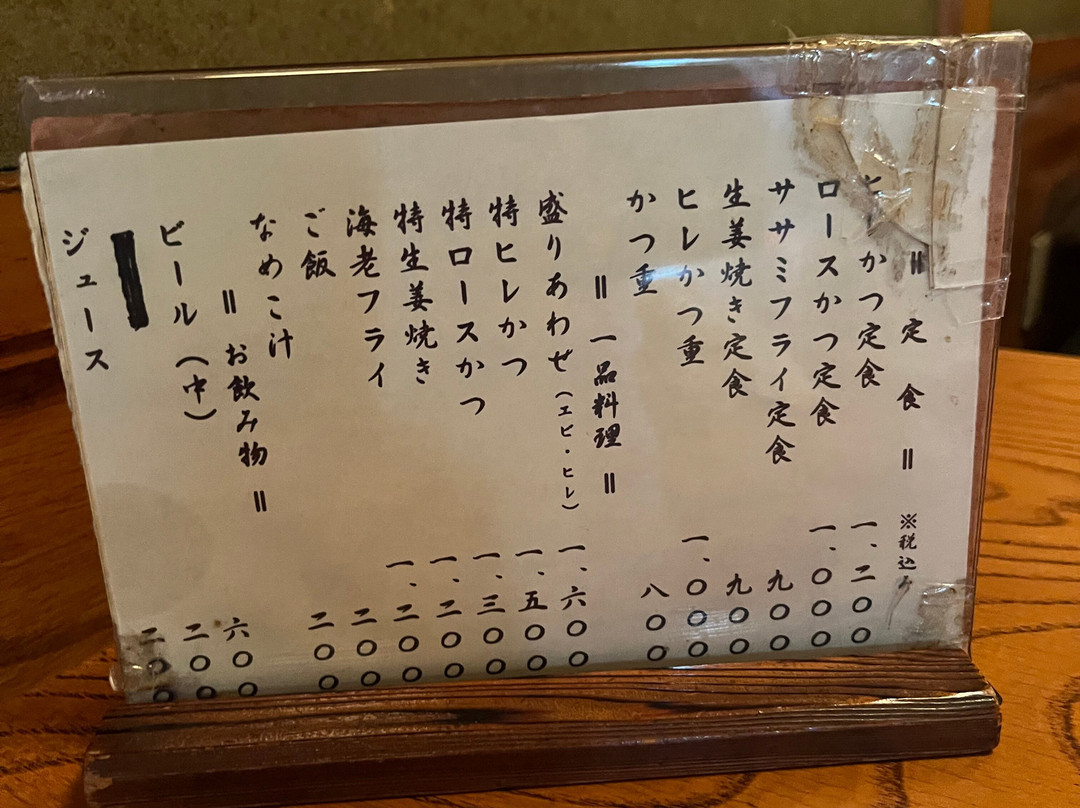 ＝ 定 食 ＝ ※税込み
かつ定食 一、二〇〇
ロースかつ定食 一、〇〇〇
ササミフライ定食 九〇〇
生姜焼き定食 九〇〇
ヒレかつ重 一、〇〇〇
かつ重 八〇〇
＝ 一品料理 ＝
盛りあわせ（エビ・ヒレ） 一、六〇〇
特ヒレかつ 一、五〇〇
特ロースかつ 一、三〇〇
特生姜焼き 一、二〇〇
海老フライ 一、二〇〇
ご飯 二〇〇
なめこ汁 二〇〇
＝ お飲み物 ＝
ビール（中） 六〇〇
二〇〇
ジュース 二〇〇